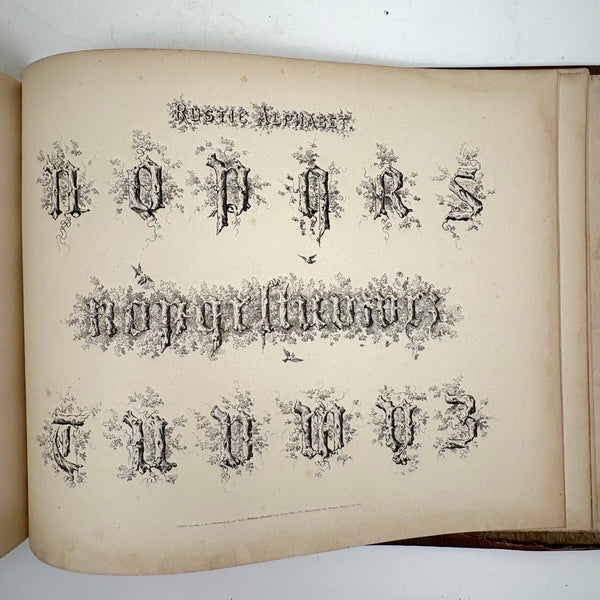 RUSTIC ALPHABET.
N O P Q R S
n o p q r ſ t u v w x y z
T U V W Y Z